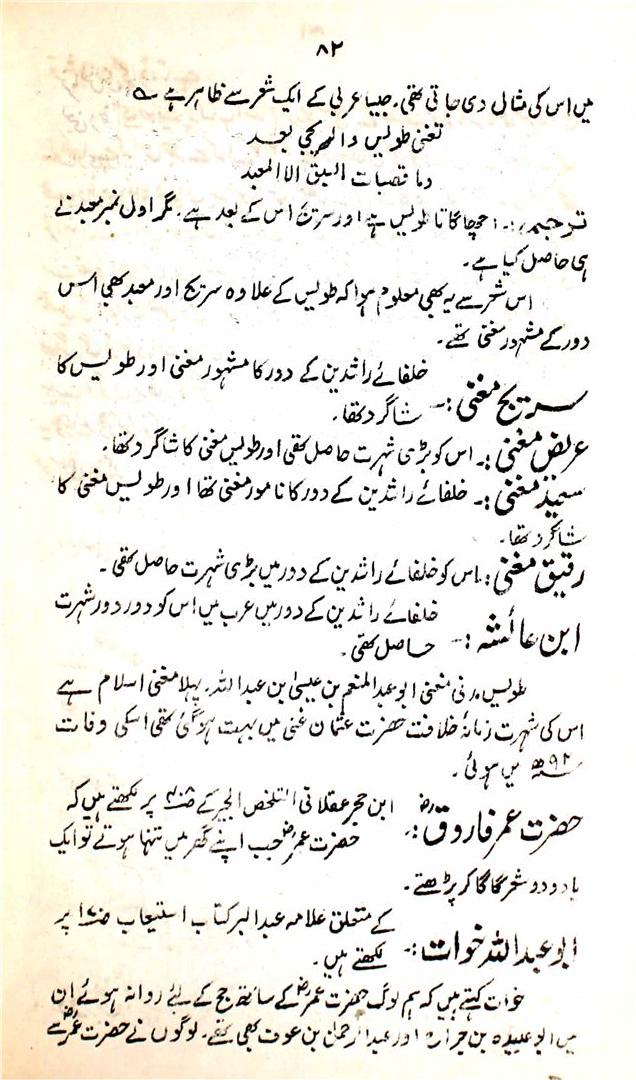 ۸۲
میں اس کی مثال دی جاتی تھی۔ جیسا عربی کے ایک شعر سے ظاہر ہے ؎
تغنی طولیس والسریجی بعد
وما قصبات السبق الا المعبد
ترجمہ:۔ اچھا گانا طولیس ہے اور سریج اس کے بعد ہے۔ مگر اول نمبر معبد نے
ہی حاصل کیا ہے۔
اس شعر سے یہ بھی معلوم ہوا کہ طولیس کے علاوہ سریج اور معبد بھی اس
دور کے مشہور مغنی تھے۔
سریج مغنی:۔ خلفائے راشدین کے دور کا مشہور مغنی اور طولیس کا
شاگرد تھا۔
عریض مغنی:۔ اس کو بڑی شہرت حاصل تھی اور طولیس مغنی کا شاگرد تھا۔
مغنی:۔ خلفائے راشدین کے دور کا نامور مغنی تھا اور طولیس مغنی کا
شاگرد تھا۔
رقیق مغنی:۔ اس کو خلفائے راشدین کے دور میں بڑی شہرت حاصل تھی۔
ابن عائشہ:۔ خلفائے راشدین کے دور میں عرب میں اس کو دور دور شہرت
حاصل تھی۔
طولیس مدنی مغنی ابو عبد المنعم بن عیسیٰ بن عبد اللہ۔ پہلا مغنی اسلام ہے
اس کی شہرت زمانۂ خلافت حضرت عثمان غنی میں بہت ہو گئی تھی اسکی وفات
سنہ ۹۲ھ میں ہوئی۔
حضرت عمر فاروقؓ:۔ ابن حجر عقلانی التلخص الجیر کے پر لکھتے ہیں کہ
حضرت عمرؓ جب اپنے گھر میں تنہا ہوتے تو ایک
یا دو دو شعر گا گا کر پڑھتے۔
ابو عبد اللہ خوات:۔ کے متعلق علامہ عبد البر کتاب استیعاب ص۱۷۰ پر
لکھتے ہیں۔
خوات کہتے ہیں کہ ہم لوگ حضرت عمرؓ کے ساتھ حج کے لئے روانہ ہوئے ان
میں ابو عبیدہ بن جراح اور عبد الرحمٰن بن عوف بھی تھے۔ لوگوں نے حضرت عمرؓ سے